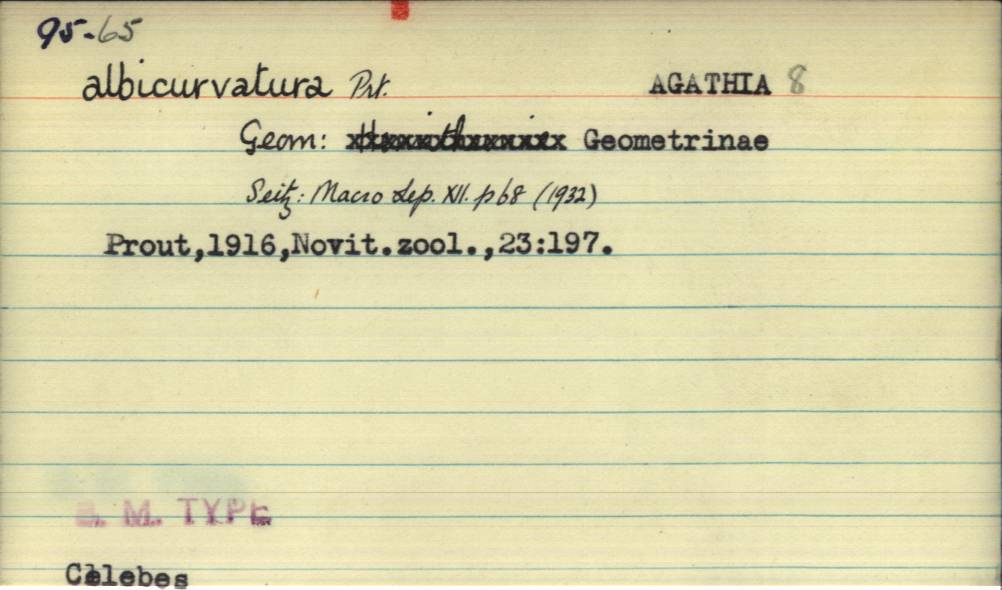 95-65
albicurvatura Prt. AGATHIA 8
Geom: Geometrinae
Seitz: Macro Lep. XII. p 68 (1932)
Prout,1916,Novit.zool.,23:197.
B. M. TYPE
Celebes